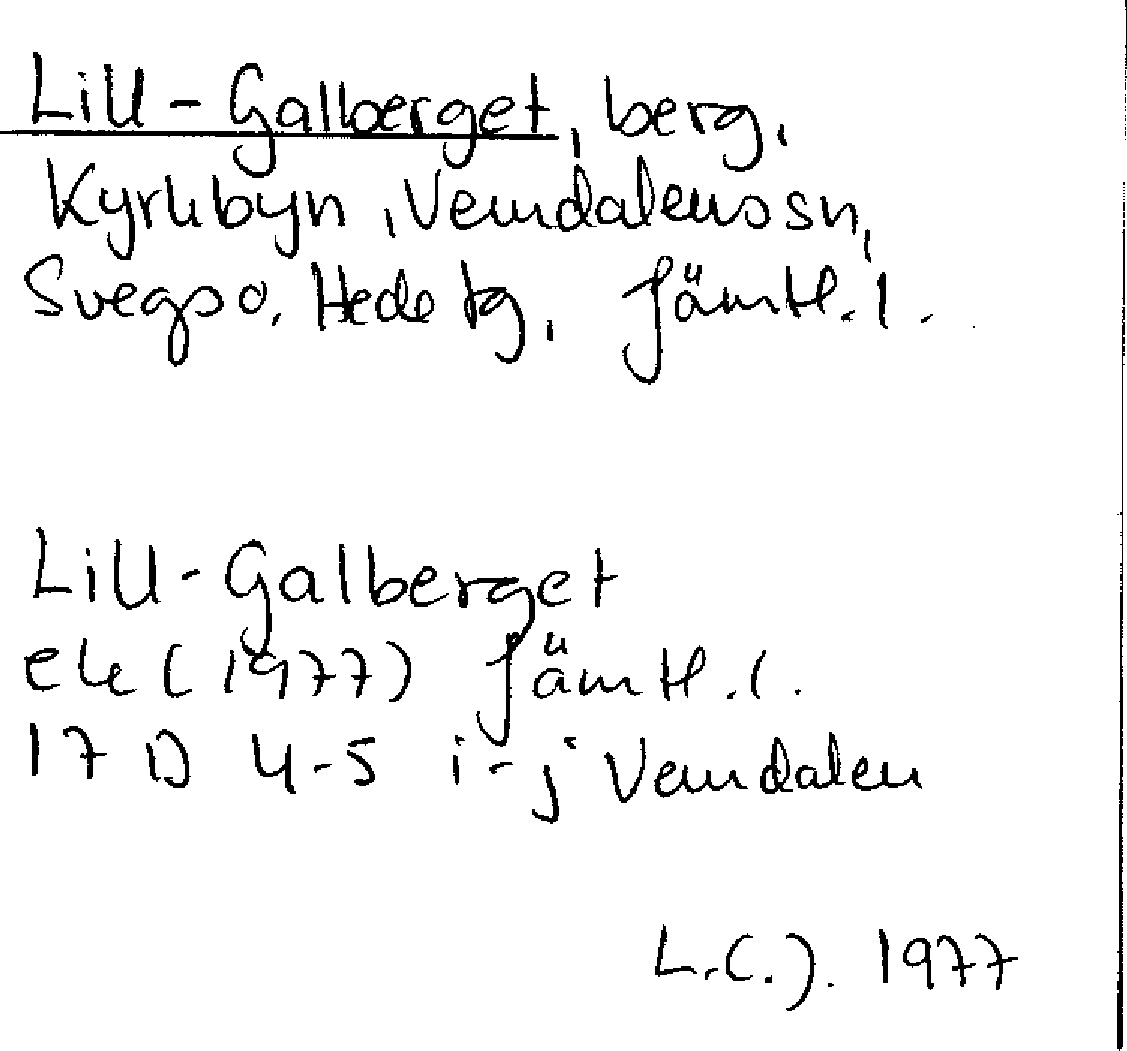 Lill-Galberget, berg,
Kyrkbyn, Vemdalens sn,
Svegs o. Hede tg, Jämtl. l.
Lill-Galberget
ek (1977) Jämtl. l.
17 D 4-5 i-j Vemdalen
L.C.J. 1977